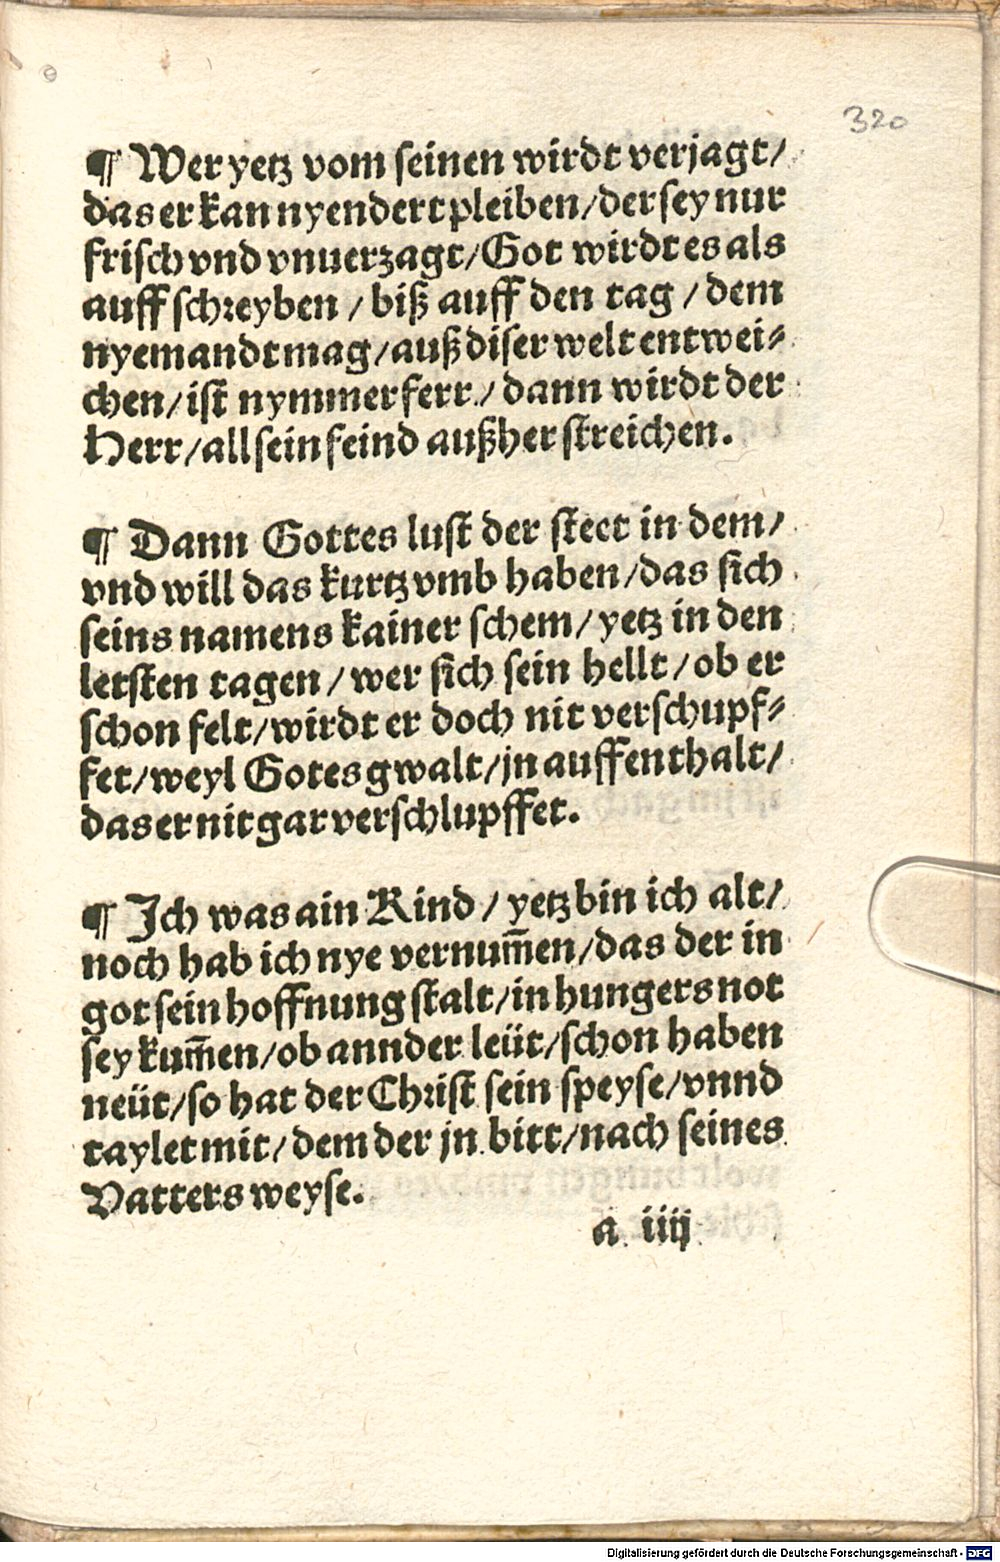 320
¶ Wer yetz vom seinen wirdt verjagt/
das er kan nyendert pleiben/der sey nur
frisch vnd vnuerzagt/Got wirdt es als
auff schreyben / biß auff den tag / dem
nyemandt mag/auß diser welt entwei⸗
chen/ist nymmer ferr/ dann wirdt der
Herr/all sein feind außher streichen.
¶ Dann Gottes lust der stect in dem/
vnd will das kurtz vmb haben/das sich
seins namens kainer schem/ yetz in den
letsten tagen/wer sich sein hellt/ob er
schon felt/wirdt er doch nit verschupf⸗
fet/weyl Gotes gwalt/jn auffenthalt/
das er nit gar verschlupffet.
¶ Ich was ain Kind / yetz bin ich alt/
noch hab ich nye vernum̄en/das der in
got sein hoffnung stalt/in hungers not
sey kum̄en/ob annder leüt/schon haben
neüt/so hat der Christ sein speyse/vnnd
taylet mit/dem der jn bitt/nach seines
Vatters weyse.
a iiij
Digitalisierung gefördert durch die Deutsche Forschungsgemeinschaft - DFG